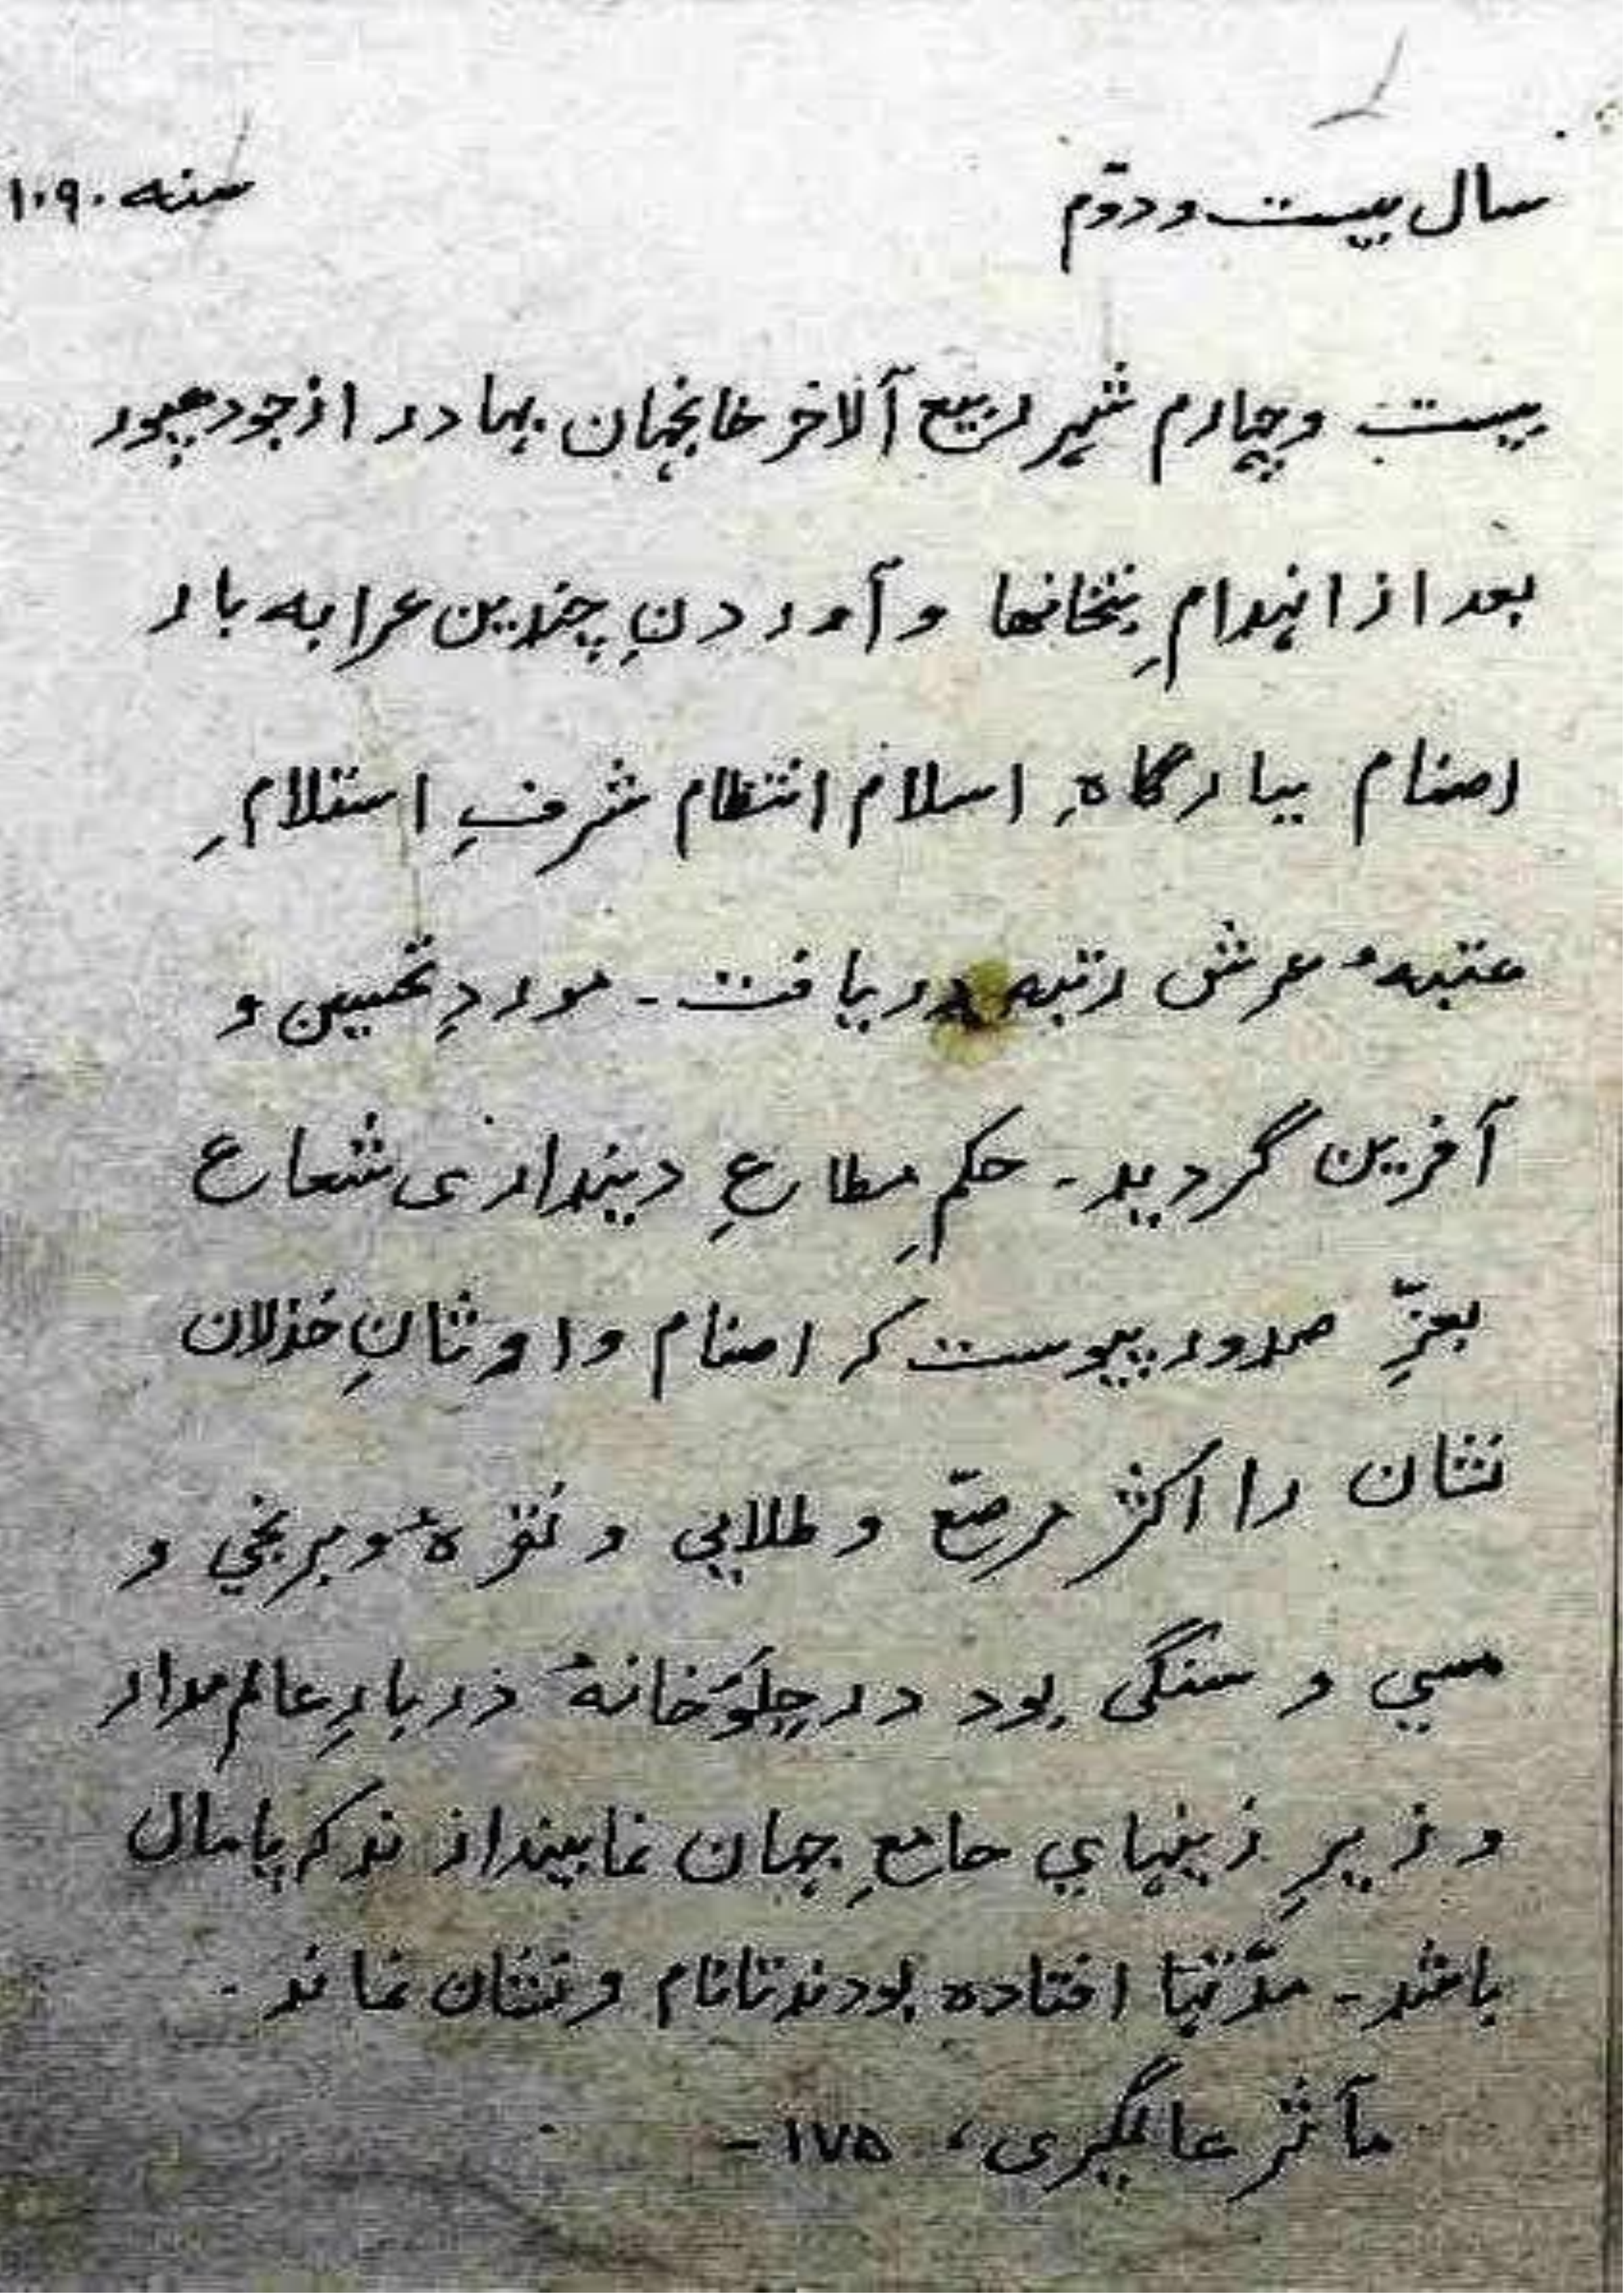 سال بیست و دوّم
سنه ۱۰۹۰
بیست و چهارم شهر ربیع آلاخر خانجهان بهادر از جودهپور
بعد از انهدامِ بتخانها و آوردنِ چندین عرابه بار
اصنام ببارگاهِ اسلام انتظام شرفِ استلامِ
عتبهٔ عرش رتبه دریافت - موردِ تحسین و
آفرین گردید - حکمِ مطاعِ دینداری شعاع
بعزِّ صدور پیوست که اصنام و اوثانِ خذلان
نشان را اکثر مرصّع و طلایی و نقرهٔ و برنجي و
مسي و سنگی بود در جلَوخانهٔ دربارِ عالم مدار
و زیرِ زینهاي جامعِ جهان نما بیندازند که پامال
باشد - مدّتها افتاده بودند تا نام و نشان نماند -
مآثر عالمگیری، ۱۷۵ -